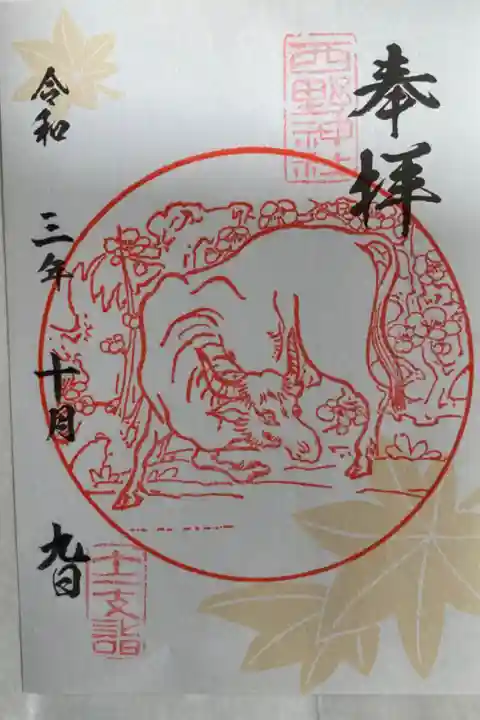 奉拝
西野神社
令和三年十月九日
十二支詣